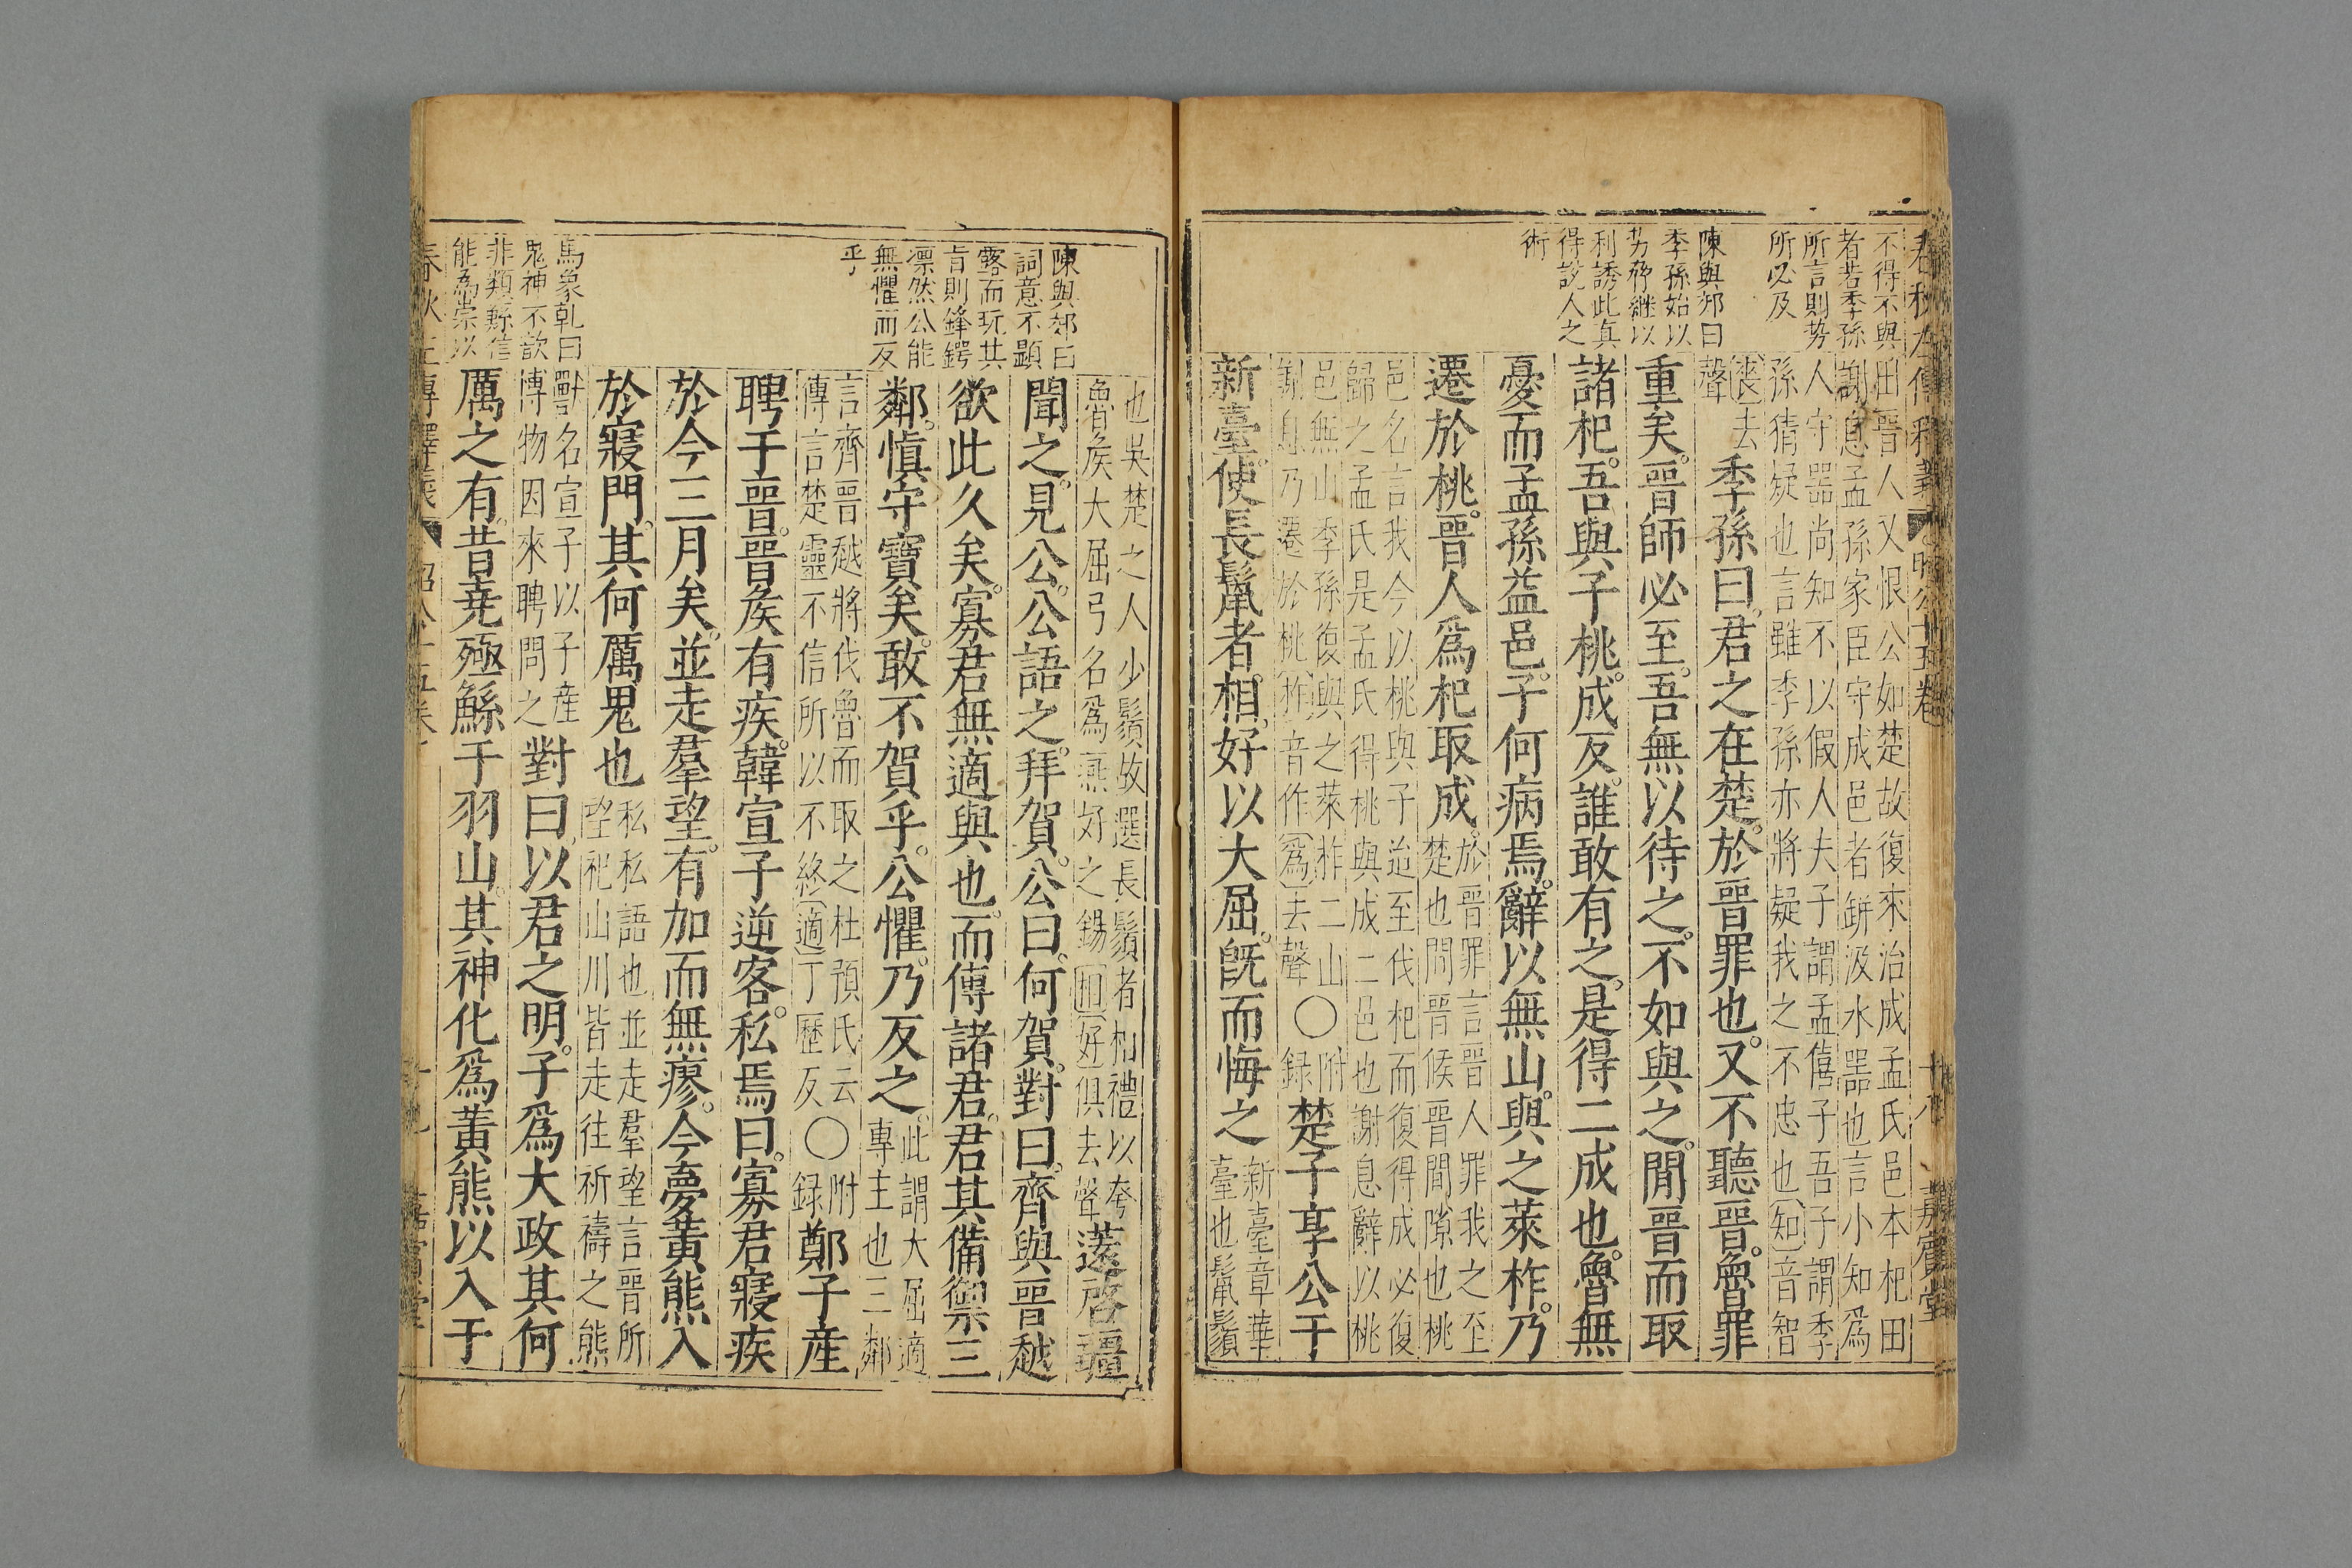 春秋左傳釋義 昭公十五卷 十八 嘉賓堂
不得不與
者若季孫
所言則势
所必及
陳與郊曰
季孫始以
势脅継以
利誘此真
得說人之
術
田晉人又恨公如楚故復來治成孟氏邑本杞田
謝息孟孫家臣守成邑者缾汲水噐也言小知為
人守噐尚知不以假人夫子謂孟僖子吾子謂季
孫猜疑也言雖季孫亦將疑我之不忠也〔知〕音智
〔喪〕去
聲
季孫曰君之在楚於晉罪也又不聽晉魯罪
重矣晉師必至吾無以待之不如與之閒晉而取
諸杞吾與子桃成反誰敢有之是得二成也魯無
憂而孟孫益邑子何病焉辭以無山與之萊柞乃
遷於桃晉人爲杞取成
於晉罪言晉人罪我之至
楚也閒晉候晉間隙也桃
邑名言我今以桃與子迨至伐杞而復得成必復
歸之孟氏是孟氏得桃與成二邑也謝息辭以桃
邑無山季孫復與之萊柞二山
謝息乃遷於桃〔柞〕音作〔爲〕去聲
〇
附
録
楚子享公于
新臺使長鬣者相好以大屈旣而悔之
新臺章華
臺也鬣鬚
也吳楚之人少鬚故選長鬚者相禮以夸
魯矦大屈弓名爲燕好之錫〔相〕〔好〕俱去聲
薳啓疆
聞之見公公語之拜賀公曰何賀對曰齊與晉越
欲此久矣寡君無適與也而傳諸君君其備禦三
鄰愼守寶矣敢不賀乎公懼乃反之
此謂大屈適
專主也三鄰
言齊晋越將伐魯而取之杜預氏云
傳言楚靈不信所以不終〔適〕丁歷反
〇
附
録
鄭子產
聘于晉晉矦有疾韓宣子逆客私焉曰寡君寢疾
於今三月矣並走羣望有加而無瘳今夢黃熊入
於寢門其何厲鬼也
私私語也並走羣望言晉所
望祀山川皆走往祈禱之熊
獸名宣子以子產
博物因來聘問之
對曰以君之明子爲大政其何
厲之有昔堯殛鯀于羽山其神化爲黃熊以入于
陳與郊曰
詞意不顕
露而玩其
旨則鋒鍔
凛然公能
無懼而反
乎
馬象乹曰
鬼神不歆
非類鯀信
能為祟以
春秋左傳釋義 昭公十五卷 十九 嘉賓堂